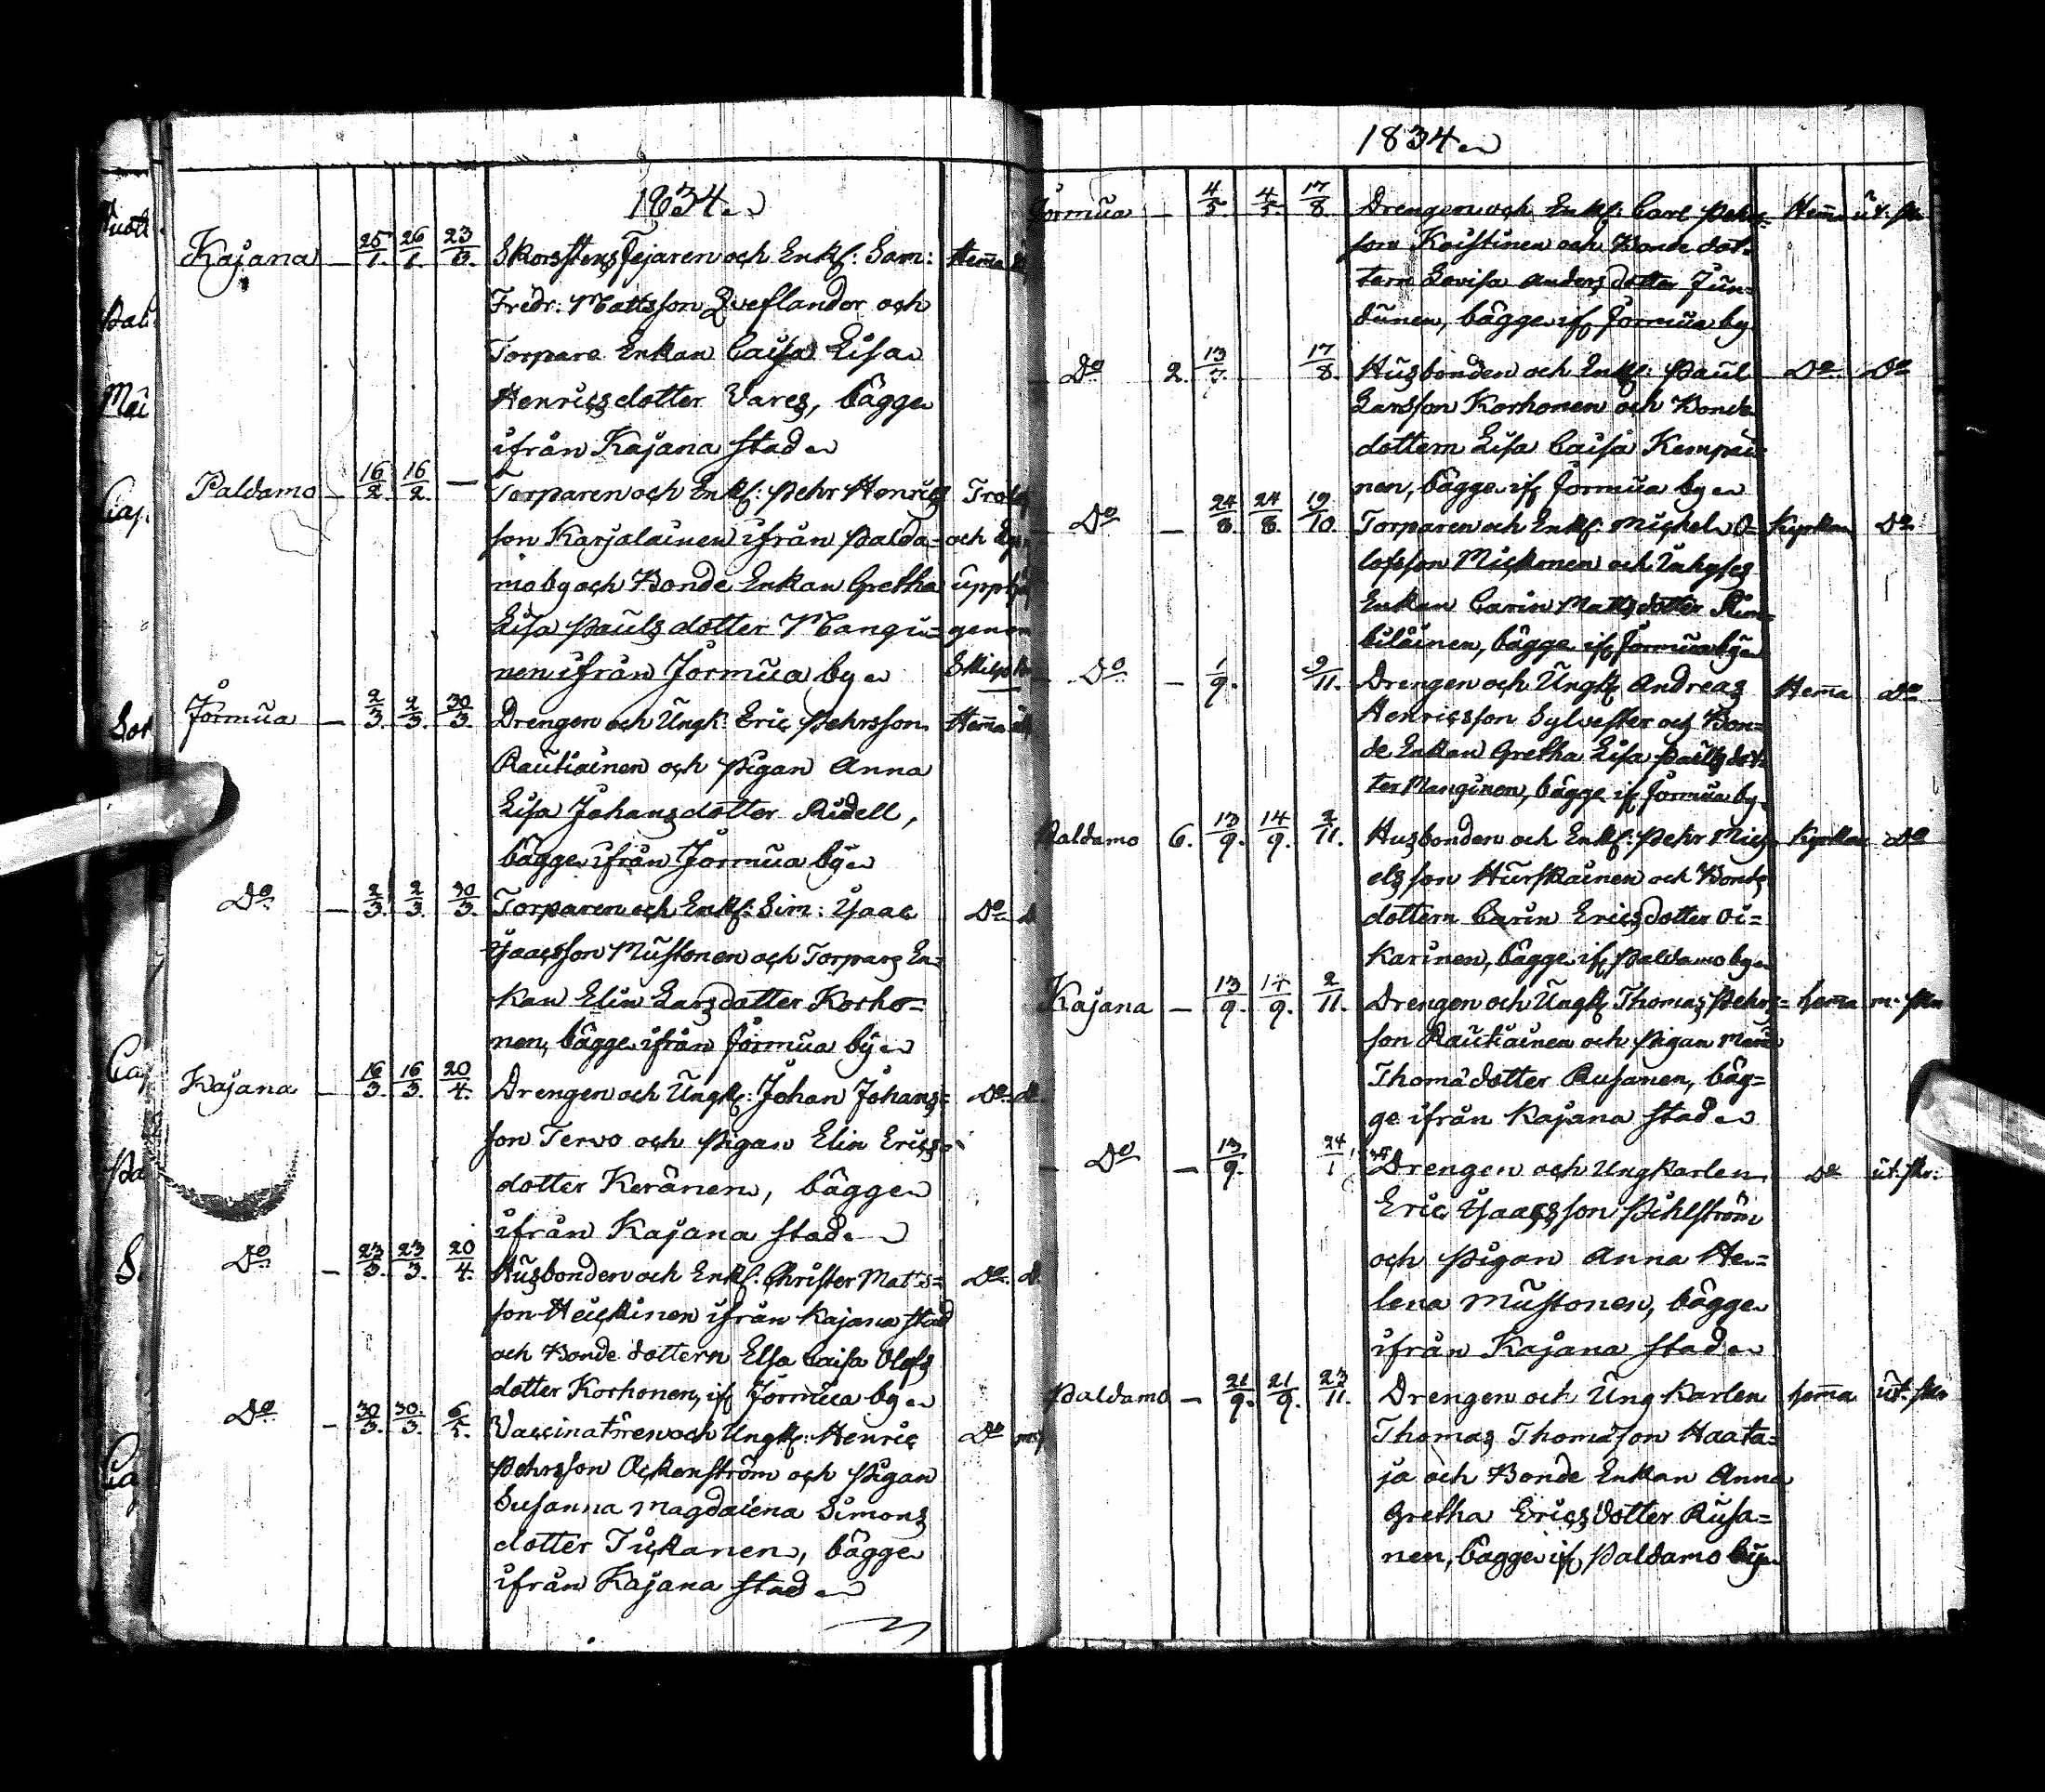 1834
Kajana — 25/1. 26/1. 23/3. Skorstens Fejaren och Enkl: Sam: Hema
Fridr: Mattsson Qveflander och
Torpare Enkan Caisa Lisa
Henricsdotter Vares, bägge
ifrån Kajana stad
Paldamo — 16/2. 16/2. — Torparen och Enkl: Pehr Henrics
son Karjalainen ifrån Palda- och
mo by och Bonde Enkan Gretha
Lisa Paulsdotter Mangi= genom
nen ifrån Jormua by
Jormua — 2/3. 2/3. 30/3. Drengen och Ungk: Eric Pehrsson Hema
Rautiainen och Pigan Anna
Lisa Johansdotter Ridell,
bägge ifrån Jormua by
Do — 2/3. 2/3. 30/3. Torparen och Enkl: Sim: Ysaac Do
Ysaacsson Mustonen och Torpare En=
kan Elin Larsdotter Korho=
nen, bägge ifrån Jormua by
Kajana — 16/3. 16/3. 20/4. Drengen och Ungk: Johan Johans= Do
son Tervo och Pigan Elin Erics
dotter Keränen, bägge
ifrån Kajana stad
Do — 23/3. 23/3. 20/4. Husbonden och Enkl: Christer Mats= Do
son Heickinen ifrån Kajana stad
och Bonde dottern Elsa Caisa Olofs
dotter Korhonen, if Jormua by
Do — 30/3. 30/3. 6/5. Vaccinatören och Ungk: Henric Do
Pehrsson Ockenström och Pigan
Susanna Magdalena Simons
dotter Tickanen, bägge
ifrån Kajana stad
1834
Jormua — 4/5. 4/5. 17/8 Drengen och Enkl: Carl Pehrs= Hema
son Koistinen och Bonde dot=
tern Lovisa Andersdotter Jun=
dunen, bägge if Jormua by
Do 2. 13/7. 17/8. Husbonden och Enkl: Paul Do Do
Larsson Korhonen och Bonde
dottern Lisa Caisa Kempai=
nen, bägge if Jormua by
Do — 24/8. 24/8. 19/10. Torparen och Enkl: Michel O= Do
lofsson Mickonen och
Enkan Carin Mattsdotter
bägge if Jormua by
Do — 1/9. 9/11. Drengen och Ungk: Andreas Hema Do
Henricsson Sylvester och Bon=
de Enkan Gretha Lisa Paulsdot=
ter Manginen, bägge if Jormua by
Paldamo 6. 13/9. 14/9. 2/11. Husbonden och Enkl: Pehr Mich= Do
elsson Hurskainen och Bonde
dottern Carin Ericsdotter Oi=
karinen, bägge if Paldamo by
Kajana — 13/9. 14/9. 2/11. Drengen och Ungk: Thomas Pehrs=
son Rautiainen och Pigan
Thomädotter Rusanen, bäg=
ge ifrån Kajana stad
Do — 13/9. 24/1 Drengen och Ungkarlen Do
Eric Ysaacsson Pihlström
och Pigan Anna He=
lena Mustonen, bägge
ifrån Kajana stad
Paldamo — 21/9. 21/9. 23/11. Drengen och Ungkarlen hema
Thomas Thomäson Haata=
ja och Bonde Enkan Anna
Gretha Ericsdotter Rusa=
nen, bägge if Paldamo by